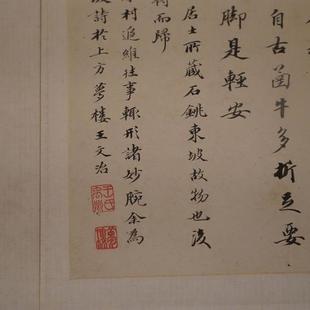 自古函牛多折足要
脚是輕安
居士所藏石銚東坡故物也後
而歸
村追維往事輒形諸妙腕余為
詩於上方夢樓王文治